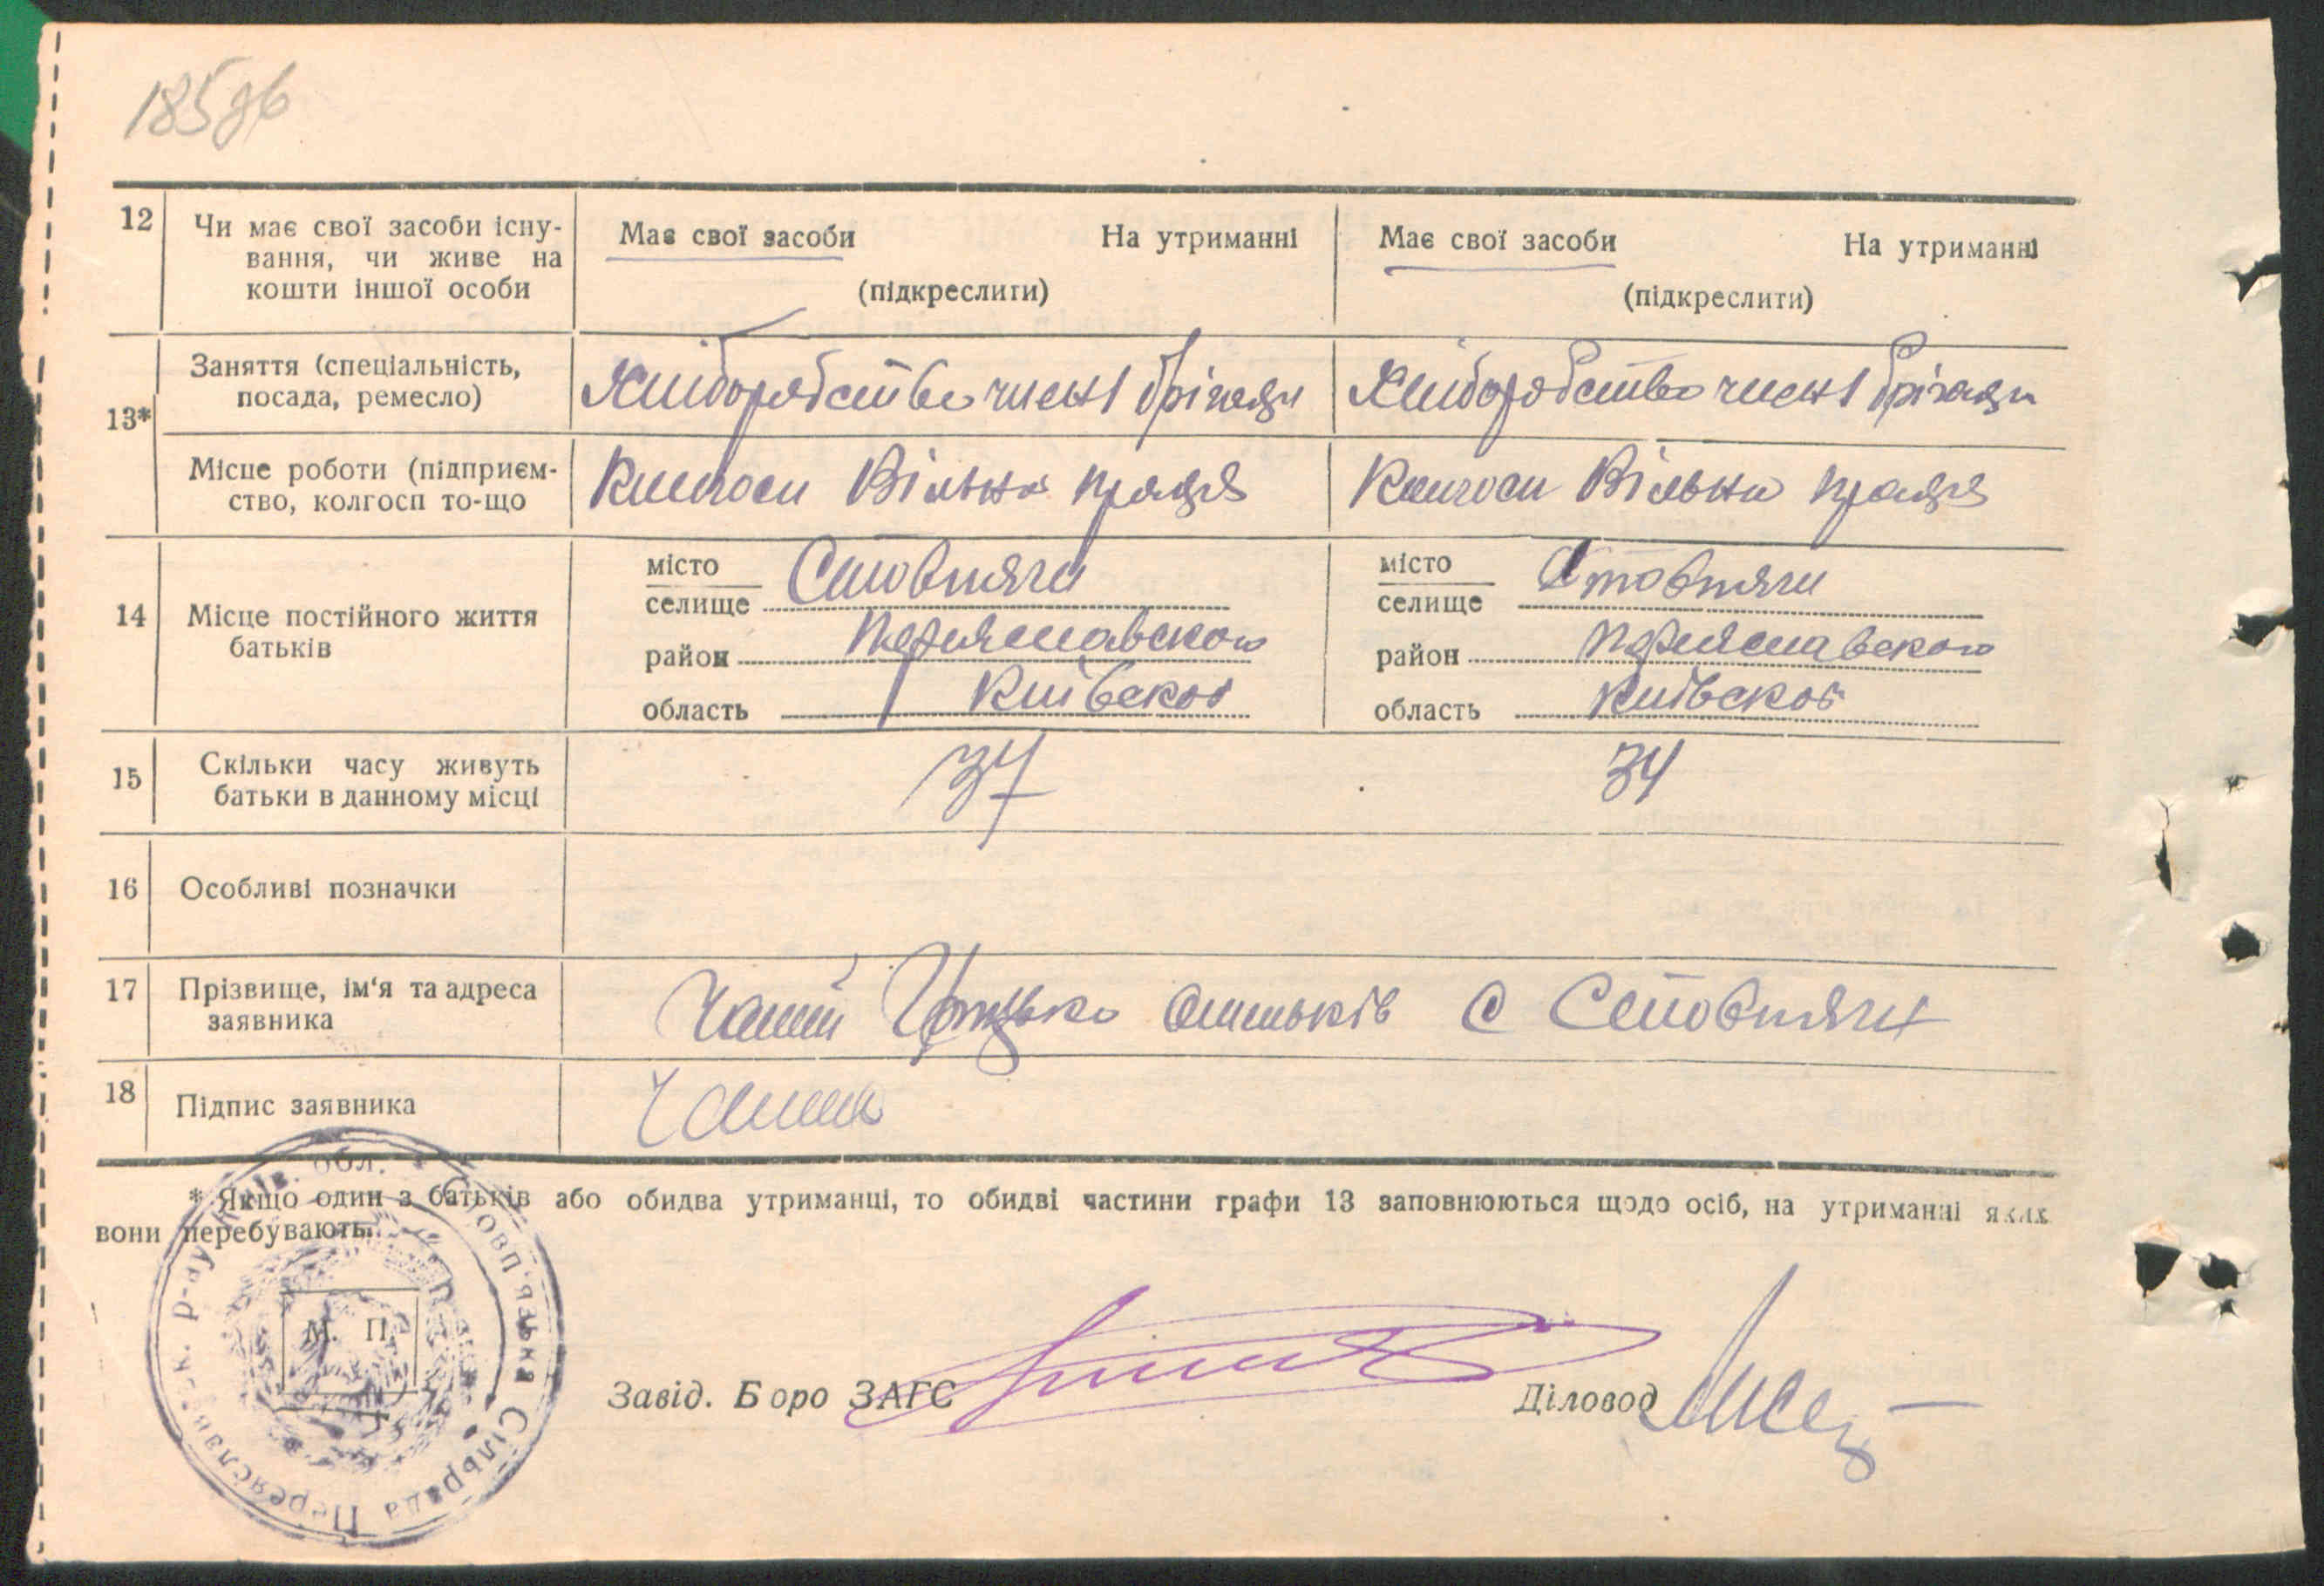 185зв
12 Чи має свої засоби існу-
вання, чи живе на
кошти іншої особи
Має свої засоби На утриманні
(підкреслити)
Має свої засоби На утриманні
(підкреслити)
13*
Заняття (спеціальність,
посада, ремесло)
Хліборобство член бригади
Хліборобство член бригади
Місце роботи (підприєм-
ство, колгосп то-що
Колгосп Вільна праця
Колгосп Вільна праця
14 Місце постійного життя
батьків
місто
селище Стовпяги
район Переяславского
область Київскої
місто
селище Стовпяги
район Переяславского
область Київскої
15 Скільки часу живуть
батьки в данному місці
37
34
16 Особливі позначки
17 Прізвище, ім'я та адреса
заявника
с Стовпяги
18 Підпис заявника
* Якщо один з батьків або обидва утриманці, то обидві частини графи 13 заповнюються щодо осіб, на утриманні яких
вони перебувають.
Київ. обл. Стовп'язька Сільрада Переяславськ. р-ну
М. П.
Завід. Бюро ЗАГС
Діловод